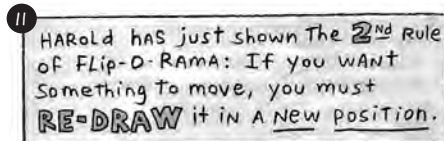 11
HAROLD HAS just shown The 2nd Rule
of FLip-O-RAMA: If you WANT
Something To move, you must
RE-DRAW it iN A New position.